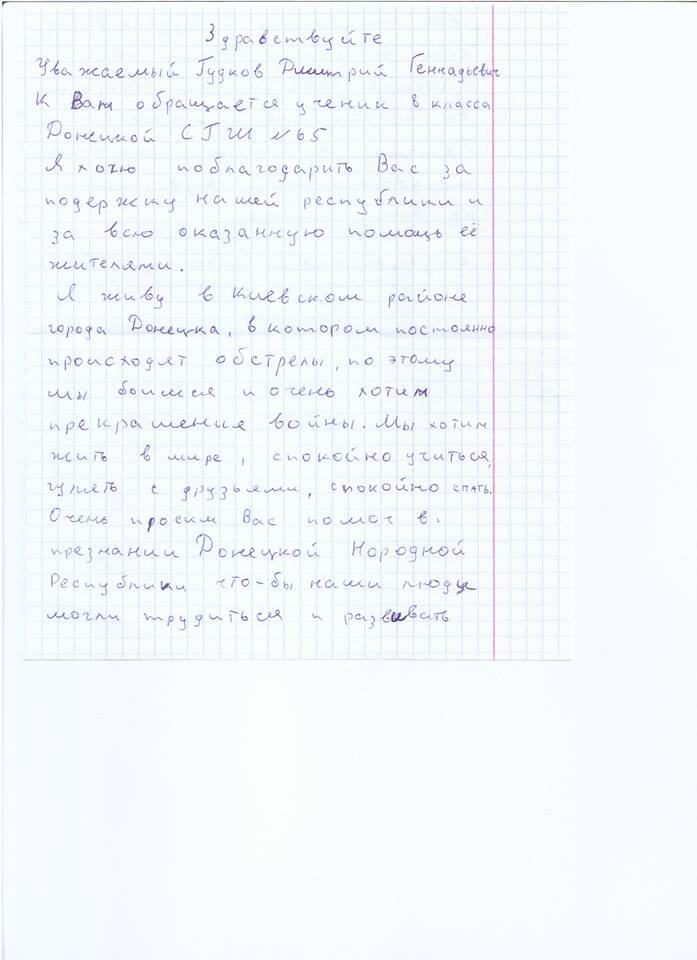 Здравствуйте
Уважаемый Гудков Дмитрий Геннадьевич
К Вам обращается ученик 8 класса
Донецкой СГШ №65
Я хочю поблагодарить Вас за
подержку нашей республики и
за всю оказанную помощь её
жителями.
Я живу в Киевском районе
города Донецка, в котором постоянно
происходят обстрелы, по этому
мы боимся и очень хотим
прекрашения войны. Мы хотим
жить в мире, спокойно учиться,
гулять с друзьями, спокойно спать.
Очень просим Вас помоч в.
презнании Донецкой Нородной
Республики что-бы наши люди
могли трудиться и развивать